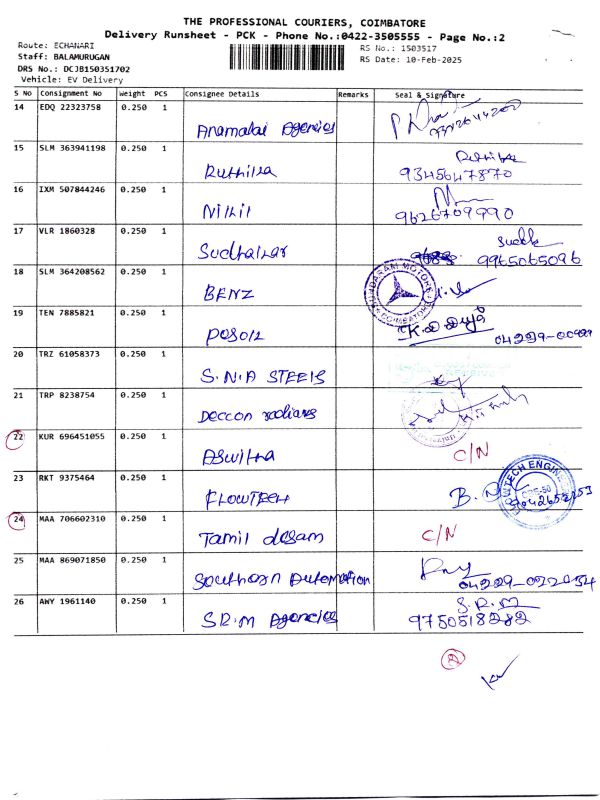 THE PROFESSIONAL COURIERS, COIMBATORE
Delivery Runsheet - PCK - Phone No.:0422-3505555 - Page No.:2
Route: ECHANARI
RS No.: 1503517
Staff: BALAMURUGAN
RS Date: 10-Feb-2025
DRS No.: DCJB150351702
Vehicle: EV Delivery
S No Consignment No Weight PCS Consignee Details Remarks Seal & Signature
14 EDQ 22323758 0.250 1
Anamalai Agencies
15 SLM 363941198 0.250 1
Ruthika 9345647870
16 IXM 507844246 0.250 1
Nikil 9626709990
17 VLR 1860328 0.250 1
Sudhakar 9965065096
18 SLM 364208562 0.250 1
BENZ
SUNDARAM MOTORS
COIMBATORE
19 TEN 7885821 0.250 1
20 TRZ 61058373 0.250 1
S.N.A STEELS
21 TRP 8238754 0.250 1
Deccon radiares
22 KUR 696451055 0.250 1
Aswitha C/N
23 RKT 9375464 0.250 1
FLOWTECH
FLOWTECH ENGINE
24 MAA 706602310 0.250 1
Tamil desam C/N
25 MAA 869071850 0.250 1
Southern Automation
26 AWY 1961140 0.250 1
S.R.M
S.R.M Agencies 9750518282
2